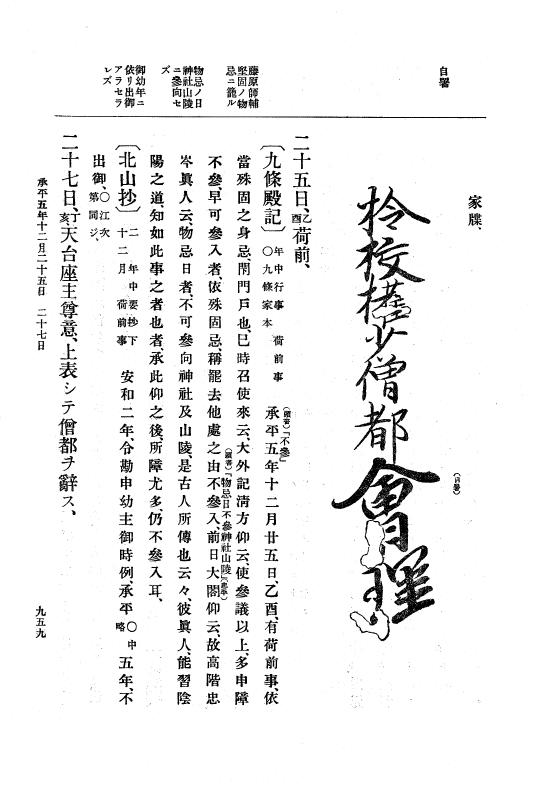 自署
家牒、
検校權少僧都會理
（自署）
藤原師輔
堅固ノ物
忌ニ籠ル
物忌ノ日
神社山陵
ニ參向セ
ズ
御幼年ニ
依リ出御
アラセラ
レズ
二十五日、乙酉荷前、
〔九條殿記〕年中行事 荷前事 ○九條家本 承平五年十二月廿五日、乙酉、有荷前事、依
（頭書）「不參」
當殊固之身忌、閇門戸也、巳時召使來云、大外記淸方仰云、使參議以上、多申障
不參、早可參入者、依殊固忌、稱罷去他處之由不參入、前日大閤仰云、故高階忠
（頭書）「物忌日不參神社山陵」
岑眞人云、物忌日者、不可參向神社及山陵、是古人所傳也云々、彼眞人、能習陰
陽之道、知如此事之者也者、承此仰之後、所障尤多、仍不參入耳、
〔北山抄〕二 年中要抄下 十二月 荷前事 安和二年、令勘申幼主御時例、承平○中略五年、不
出御、○江次第同ジ、
二十七日、丁亥天台座主尊意、上表シテ僧都ヲ辭ス、
承平五年十二月二十五日 二十七日
九五九